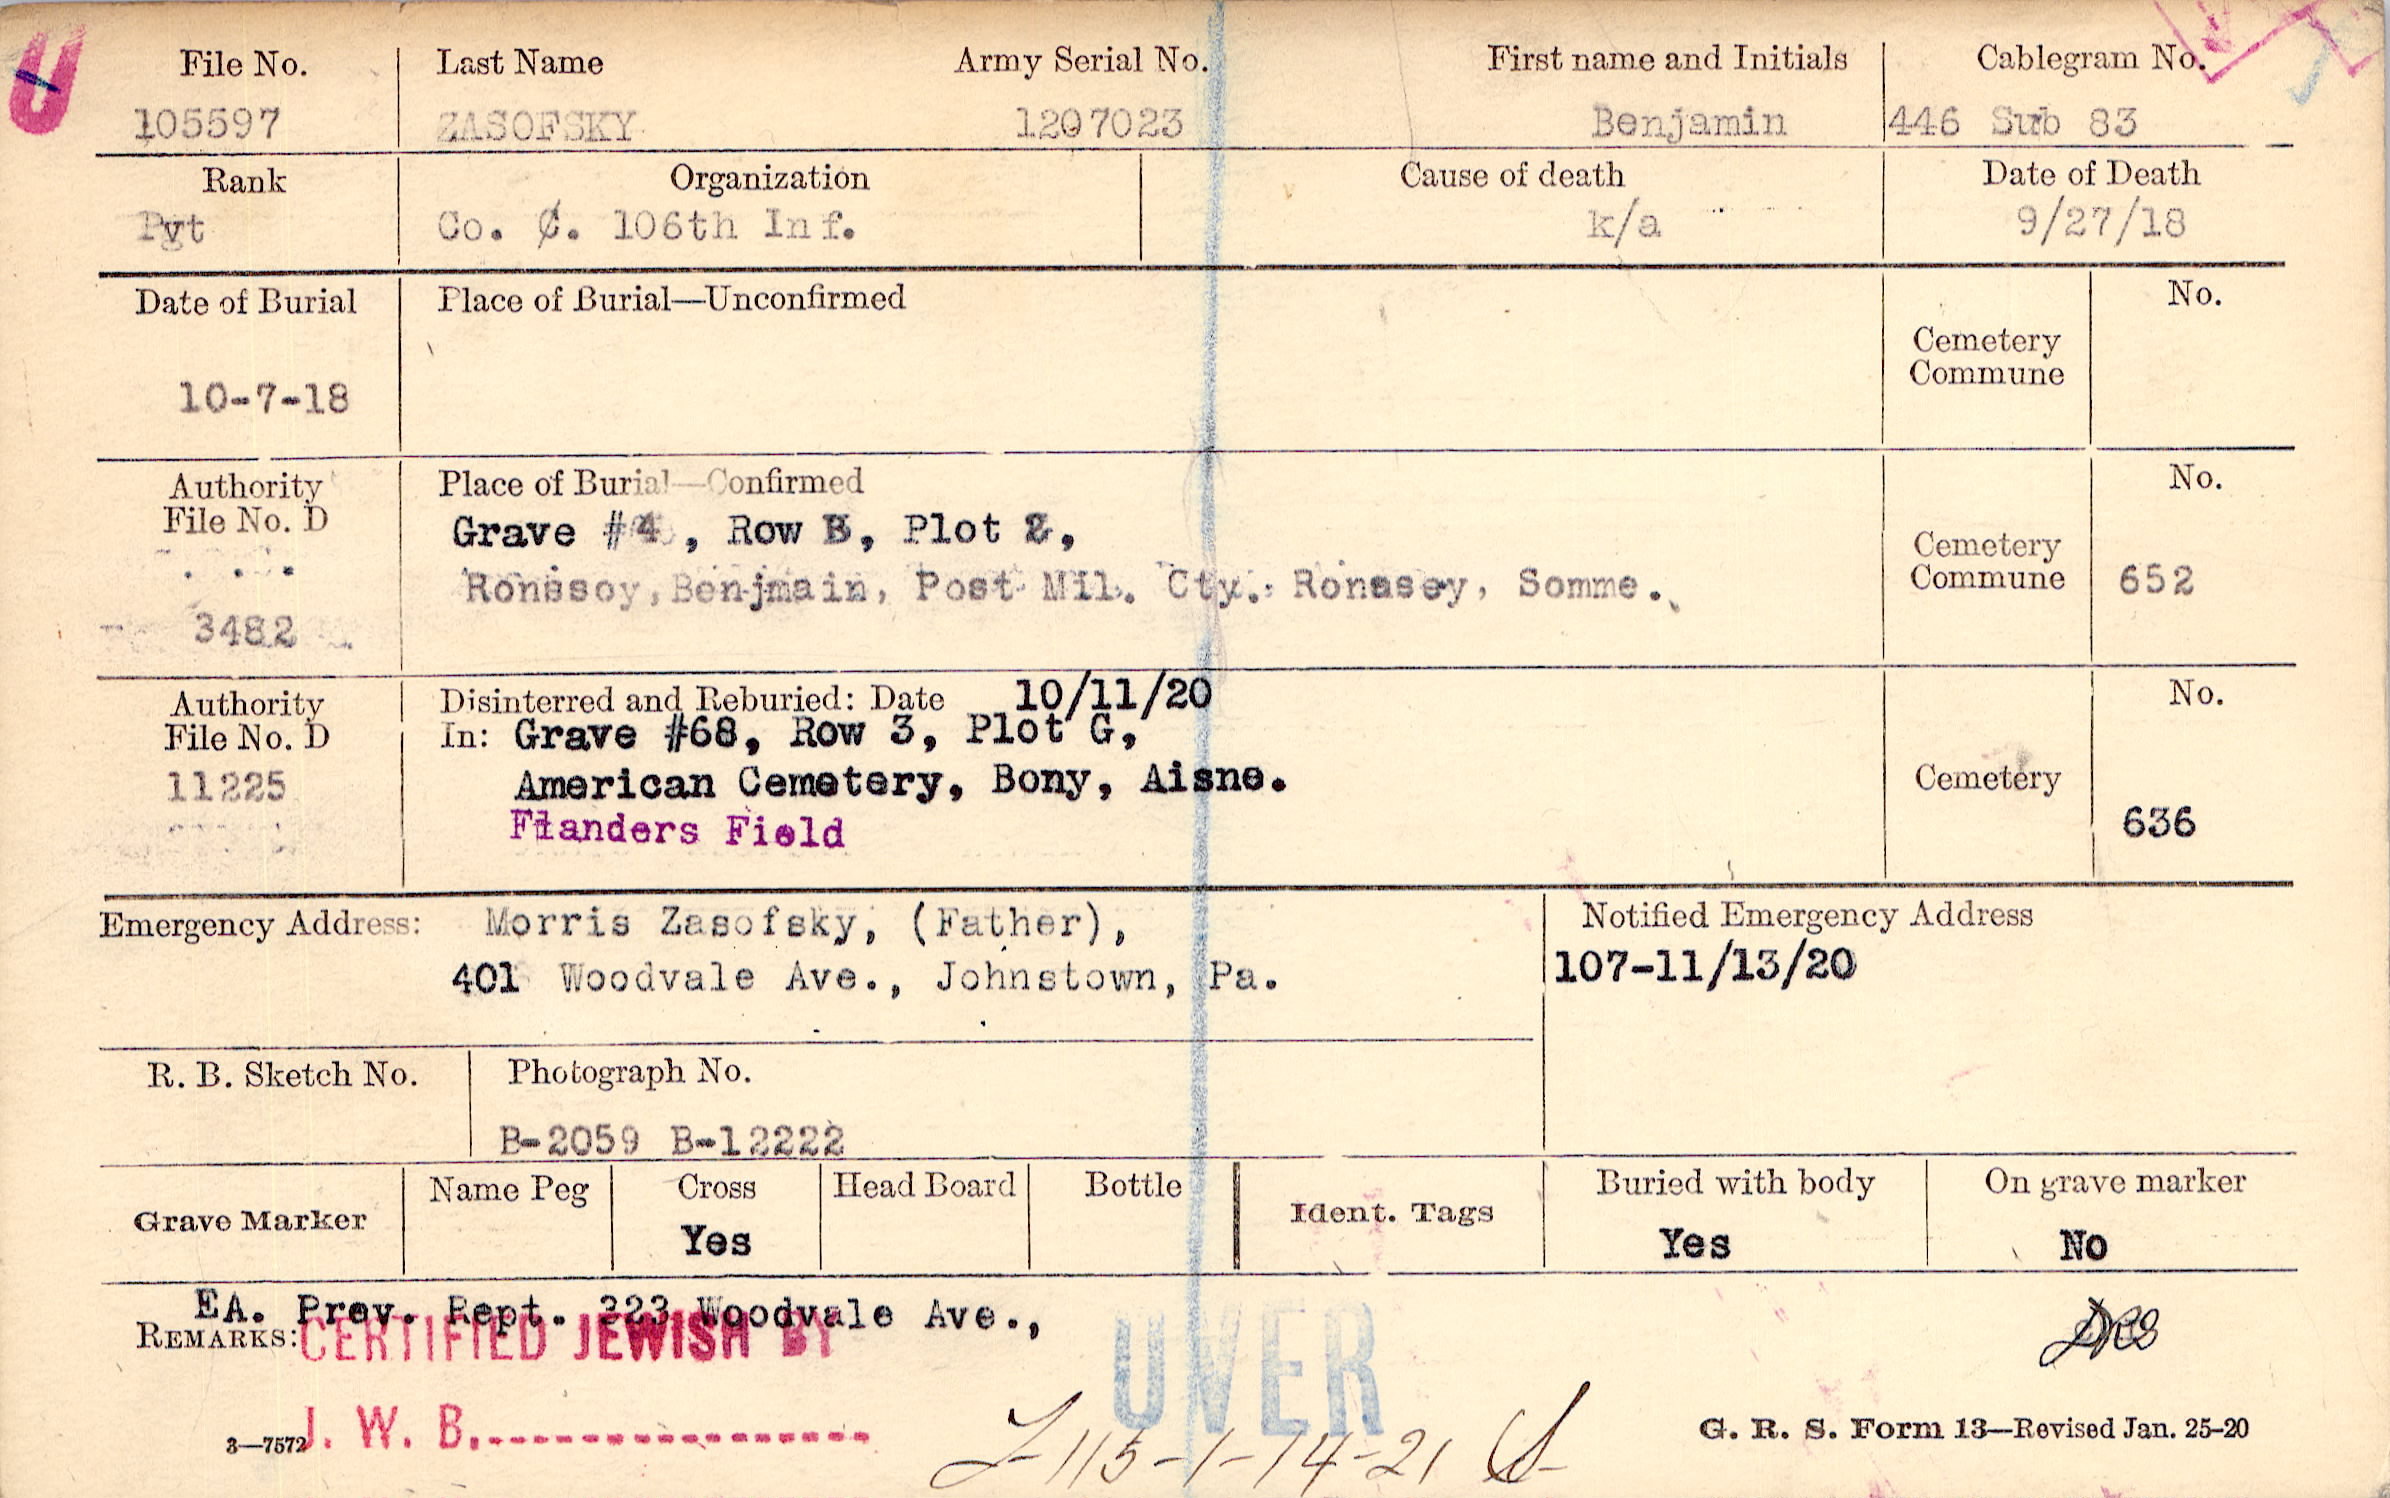 U
File No. Last Name Army Serial No. First name and Initials Cablegram No.
105597 ZASOFSKY 1207023 Benjamin 446 Sub 83
Rank Organization Cause of death Date of Death
Pvt Co. C. 106th Inf. k/a 9/27/18
Date of Burial Place of Burial—Unconfirmed No.
Cemetery
Commune
10-7-18
Authority Place of Burial—Confirmed No.
File No. D Grave #4, Row B, Plot 2, Cemetery
Ronssoy, Benjmain, Post Mil. Cty. Ronassey, Somme. Commune 652
3482
Authority Disinterred and Reburied: Date 10/11/20 No.
File No. D In: Grave #68, Row 3, Plot G,
11225 American Cemetery, Bony, Aisne. Cemetery
Flanders Field 636
Emergency Address: Morris Zasofsky, (Father), Notified Emergency Address
401 Woodvale Ave., Johnstown, Pa. 107-11/13/20
R. B. Sketch No. Photograph No.
B-2059 B-12222
Grave Marker Name Peg Cross Head Board Bottle Ident. Tags Buried with body On grave marker
Yes Yes No
EA. Prev. Rept. 323 Woodvale Ave.,
REMARKS: CERTIFIED JEWISH BY
OVER
J. W. B.
3—7572 115-1-14-21 G. R. S. Form 13—Revised Jan. 25-20